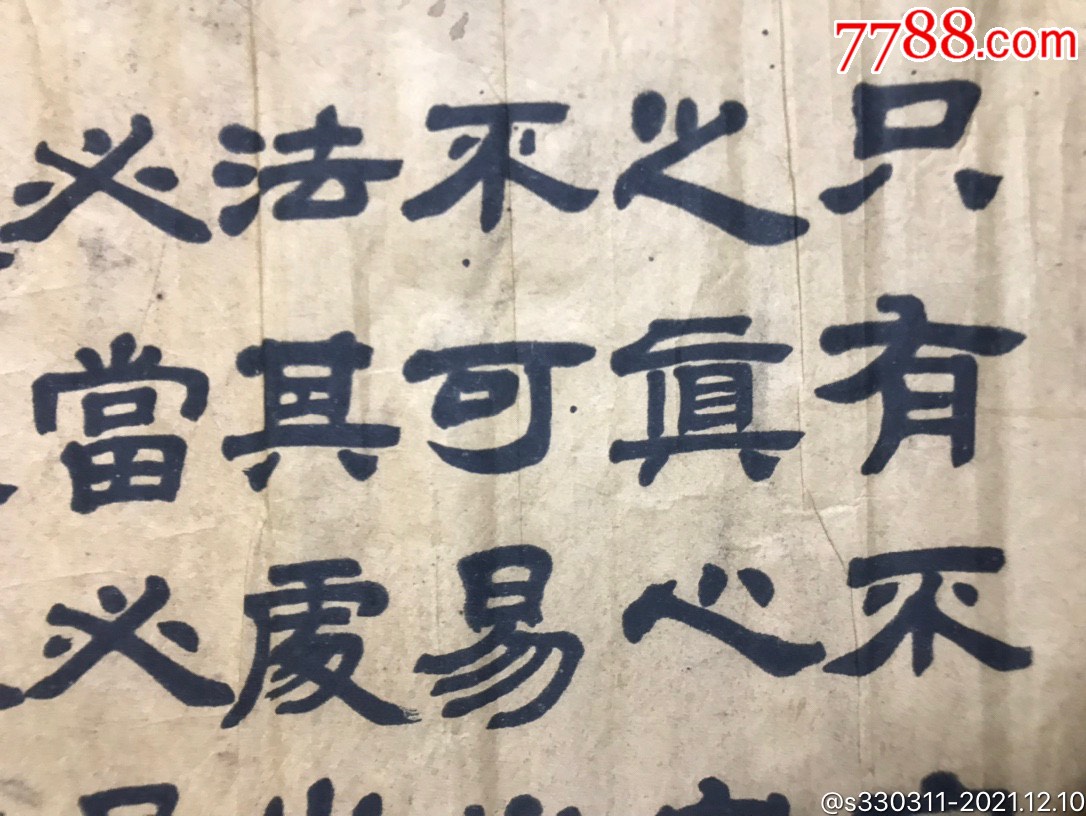 7788.com
只有不
之眞心
不可易
法其處
必當必
@s330311-2021.12.10